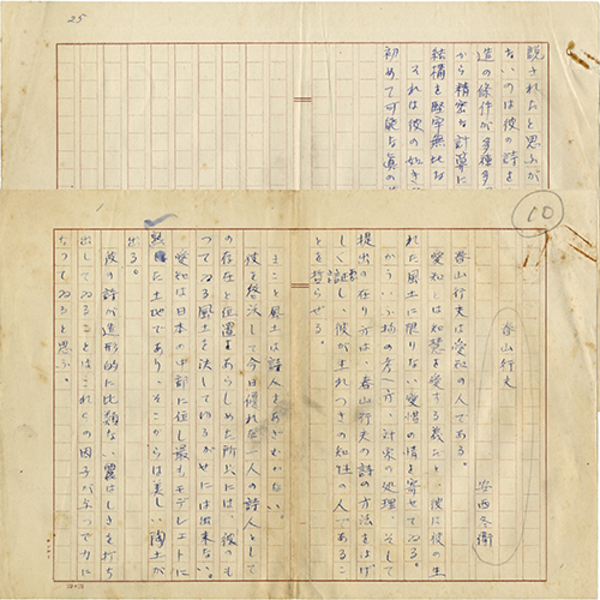 25
説されたと思ふが
ないのは彼の詩を
造の條件が多種多
から精密な計算に
結構を堅牢無比な
それは彼の如き
初めて可能な眞の
10
春山行夫
安西冬衛
春山行夫は愛知の人である。
愛知とは知慧を愛する義だと、彼は彼の生
れた風土に限りない愛惜の情を寄せてゐる。
かういふ物の考へ方、対象の処理、そして
提出の在り方は、春山行夫の詩の方法をはげ
しく證し、彼が生れつきの知性の人であるこ
とを哲らせる。
まこと風土は詩人をあざむかない。
彼を登決して今日優れた一人の詩人として
の存在と位置をあらしめた所以には、彼のも
つてゐる風土を決してゆるがせには出来ない。
愛知は日本の中部に位し最もモデレェトに
した土地であり、そこからは美しい陶土が
出る。
彼の詩が造形的に比類ない麗はしさを打ち
出してゐることはこれらの因子が与つて力に
なつてゐると思ふ。